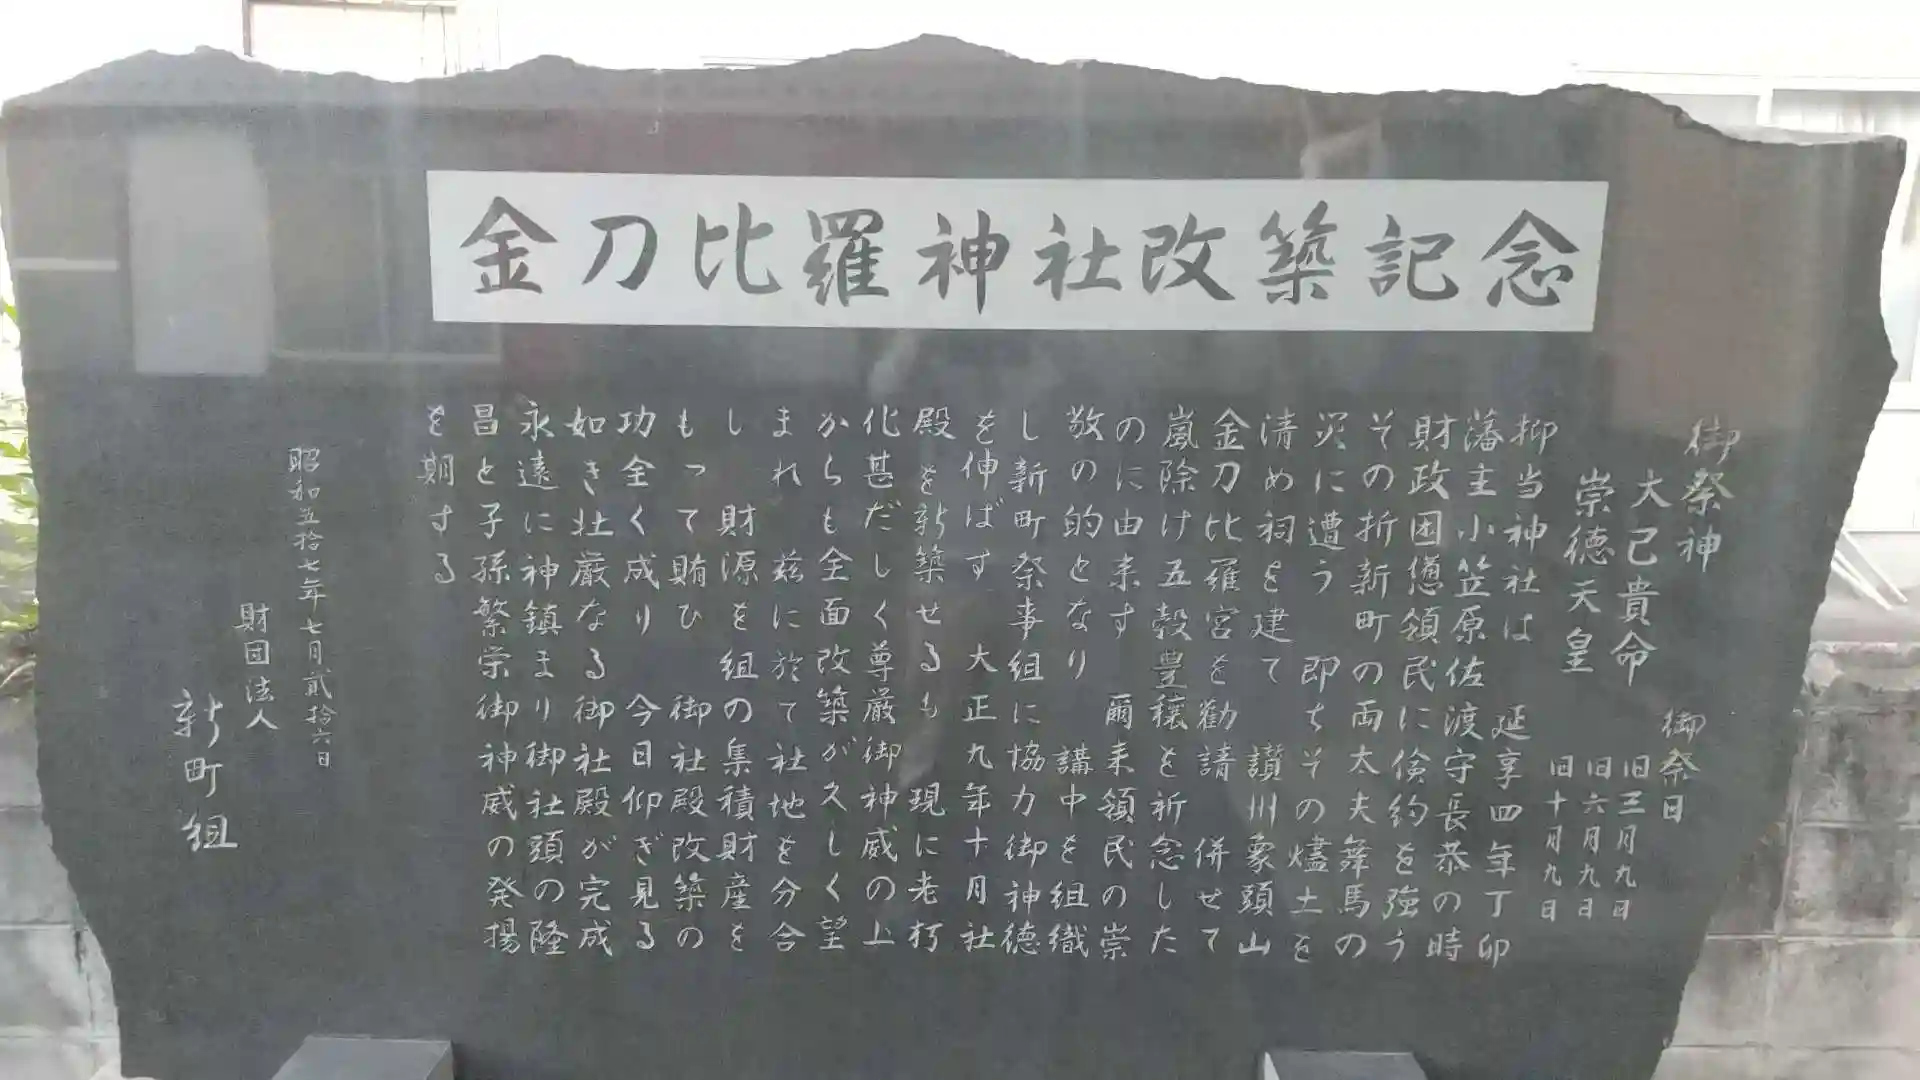 金刀比羅神社改築記念
御祭神
大己貴命
崇徳天皇
御祭日
旧三月九日
旧六月九日
旧十月九日
抑当神社は 延享四年丁卯
藩主小笠原佐渡守長恭の時
財政困憊領民に倹約を強う
その折新町の両太夫舞馬の
災に遭う 即ちその燼土を
清め祠を建て 讃州象頭山
金刀比羅宮を勧請 併せて
嵐除け五穀豊穣を祈念した
のに由来す 爾来領民の崇
敬の的となり 講中を組織
し新町祭事組に協力御神徳
を伸ばす 大正九年十月社
殿を新築せるも 現に老朽
化甚だしく尊厳御神威の上
からも全面改築が久しく望
まれ 茲に於て社地を分合
し 財源を組の集積財産を
もって賄ひ 御社殿改築の
功全く成り 今日仰ぎ見る
如き壮厳なる御社殿が完成
永遠に神鎮まり御社頭の隆
昌と子孫繁栄御神威の発揚
を期する
昭和五拾七年七月貮拾六日
財団法人
新町組